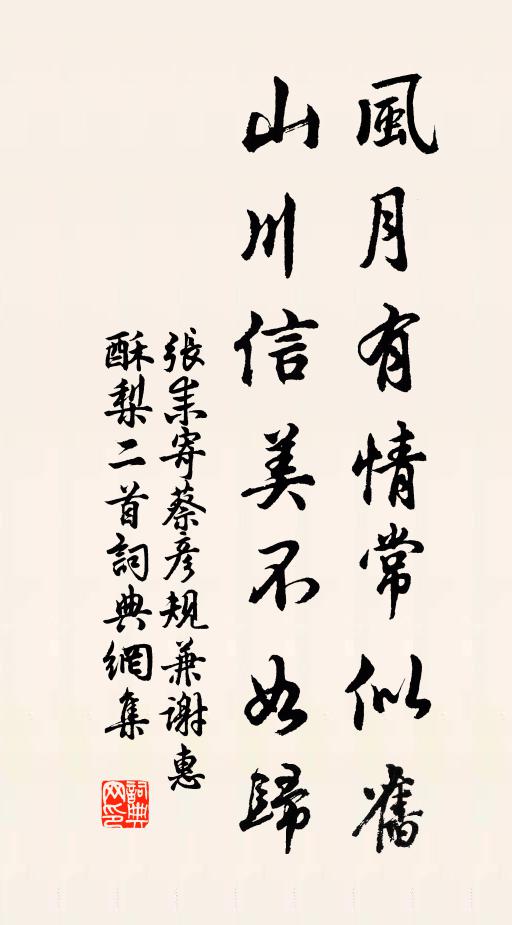 風月有情常似舊
山川信美不如歸
張耒寄蔡彥規兼謝惠
酥梨二首詞典網集
詞典网印